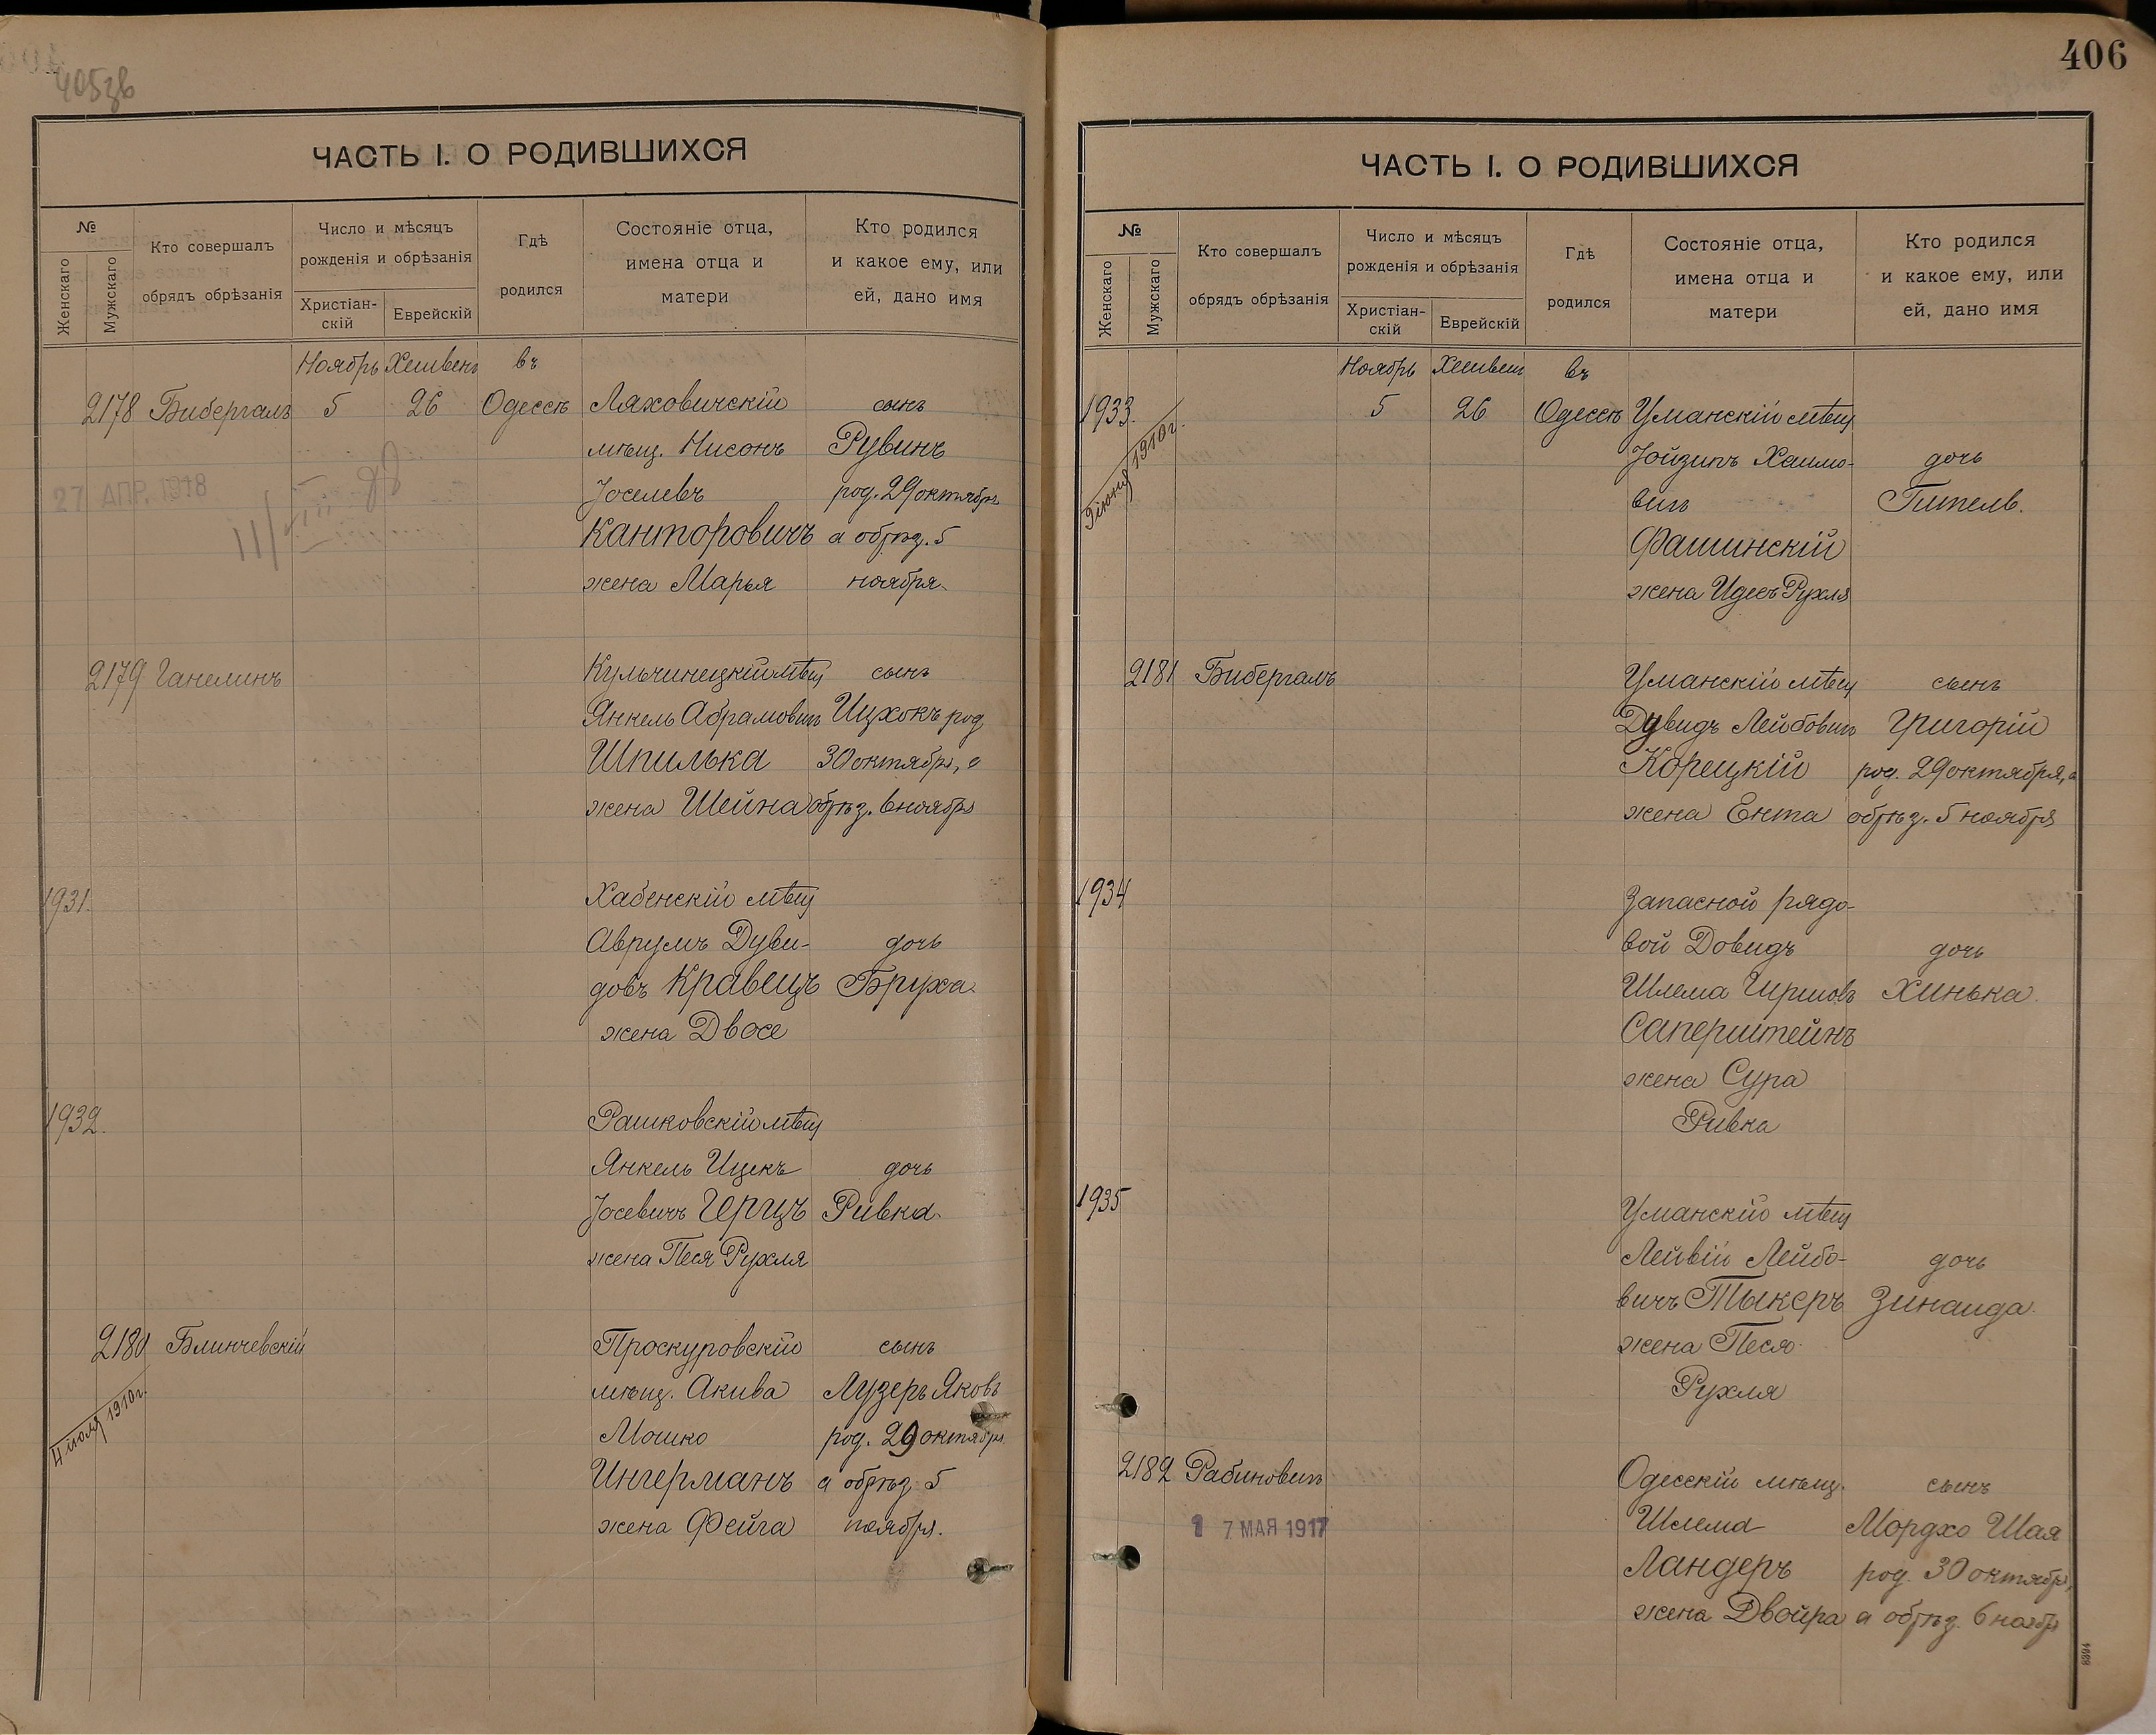 405зв
ЧАСТЬ I. О РОДИВШИХСЯ
№
Женскаго
Мужскаго
Кто совершалъ
обрядъ обрѣзанія
Число и мѣсяцъ
рожденія и обрѣзанія
Христіан-
скій
Еврейскій
Гдѣ
родился
Состояніе отца,
имена отца и
матери
Кто родился
и какое ему, или
ей, дано имя
Ноябрь Хешвенъ въ
2178 Бибергалъ 5 26 Одессѣ Ляховичскій сынъ
мѣщ. Нисонъ Рувинъ
27 АПР. 1918 Іоселевъ род. 29 октября
Канторовичъ а обрѣз. 5
жена Марья ноября.
2179 Ганелинъ Кульчинецкій мѣщ сынъ
Янкель Абрамовичъ Ицхокъ род
Шпилька 30 октября, а
жена Шейна обрѣз. 6 ноября
1931. Хабенскій мѣщ
Аврумъ Дуви- дочь
довъ Кравецъ Бруха.
жена Двосе
1932. Рашковскій мѣщ
Янкель Ицекъ дочь
Іосевичъ Герцъ Ривка.
жена Песя Рухля
2180 Блинчевскій Проскуровскій сынъ
4 іюля 1910 г. мѣщ. Акива Лузеръ Яковъ
Мошко род. 29 октября
Ингерманъ а обрѣз 5
жена Фейга ноября.
406
ЧАСТЬ I. О РОДИВШИХСЯ
№
Женскаго
Мужскаго
Кто совершалъ
обрядъ обрѣзанія
Число и мѣсяцъ
рожденія и обрѣзанія
Христіан-
скій
Еврейскій
Гдѣ
родился
Состояніе отца,
имена отца и
матери
Кто родился
и какое ему, или
ей, дано имя
Ноябрь Хешвенъ въ
1933. 5 26 Одессѣ Уманскій мѣщ
1910 г. Іойзипъ Хаимо- дочь
вичъ Гитель.
Фашинскій
жена Идесъ Рухля
2181 Бибергалъ Уманскій мѣщ сынъ
Дувидъ Лейбовичъ Григорій
Корецкій род. 29 октября, а
жена Ента обрѣз. 5 ноября
1934 Запасной рядо-
вой Довидъ дочь
Шлема Гершовъ Хинька.
Саперштейнъ
жена Сура
Ривка
1935 Уманскій мѣщ
Лейвій Лейбо- дочь
вичъ Тыкеръ Зинаида.
жена Песя
Рухля
2182 Рабиновичъ Одесскій мѣщ. сынъ
1 7 МАЯ 1917 Шлема Мордхо Шая
Ландеръ род. 30 октября,
жена Двойра а обрѣз. 6 ноябр
8394